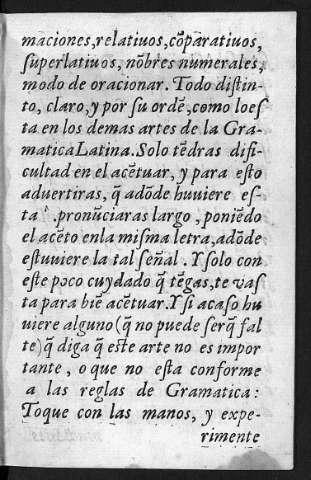 maciones,relatiuos,cõparatiuos,
ſuperlatiuos, nõbres numerales,
modo de oracionar. Todo diſtin-
to, claro, y por ſu ordẽ, como loeſ
ta en los demas artes de la Gra-
matica Latina. Solo tẽdras difi-
cultad en el acẽtuar, y para eſto
aduertiras, q̃ adõde huuiere eſ-
ta ^. pronũciaras largo, poniẽdo
el acẽto enla miſma letra, adõde
eſtuuiere la tal ſeñal. Y ſolo con
eſte poco cuydado q̃ tẽgas, te vaſ
ta para biẽ acẽtuar. Y ſi acaſo hu
uiere alguno (q̃ no puede ſerq̃ fal
te) q̃ diga q̃ eſte arte no es impor
tante, o que no eſta conforme
a las reglas de Gramatica:
Toque con las manos, y expe-
rimente